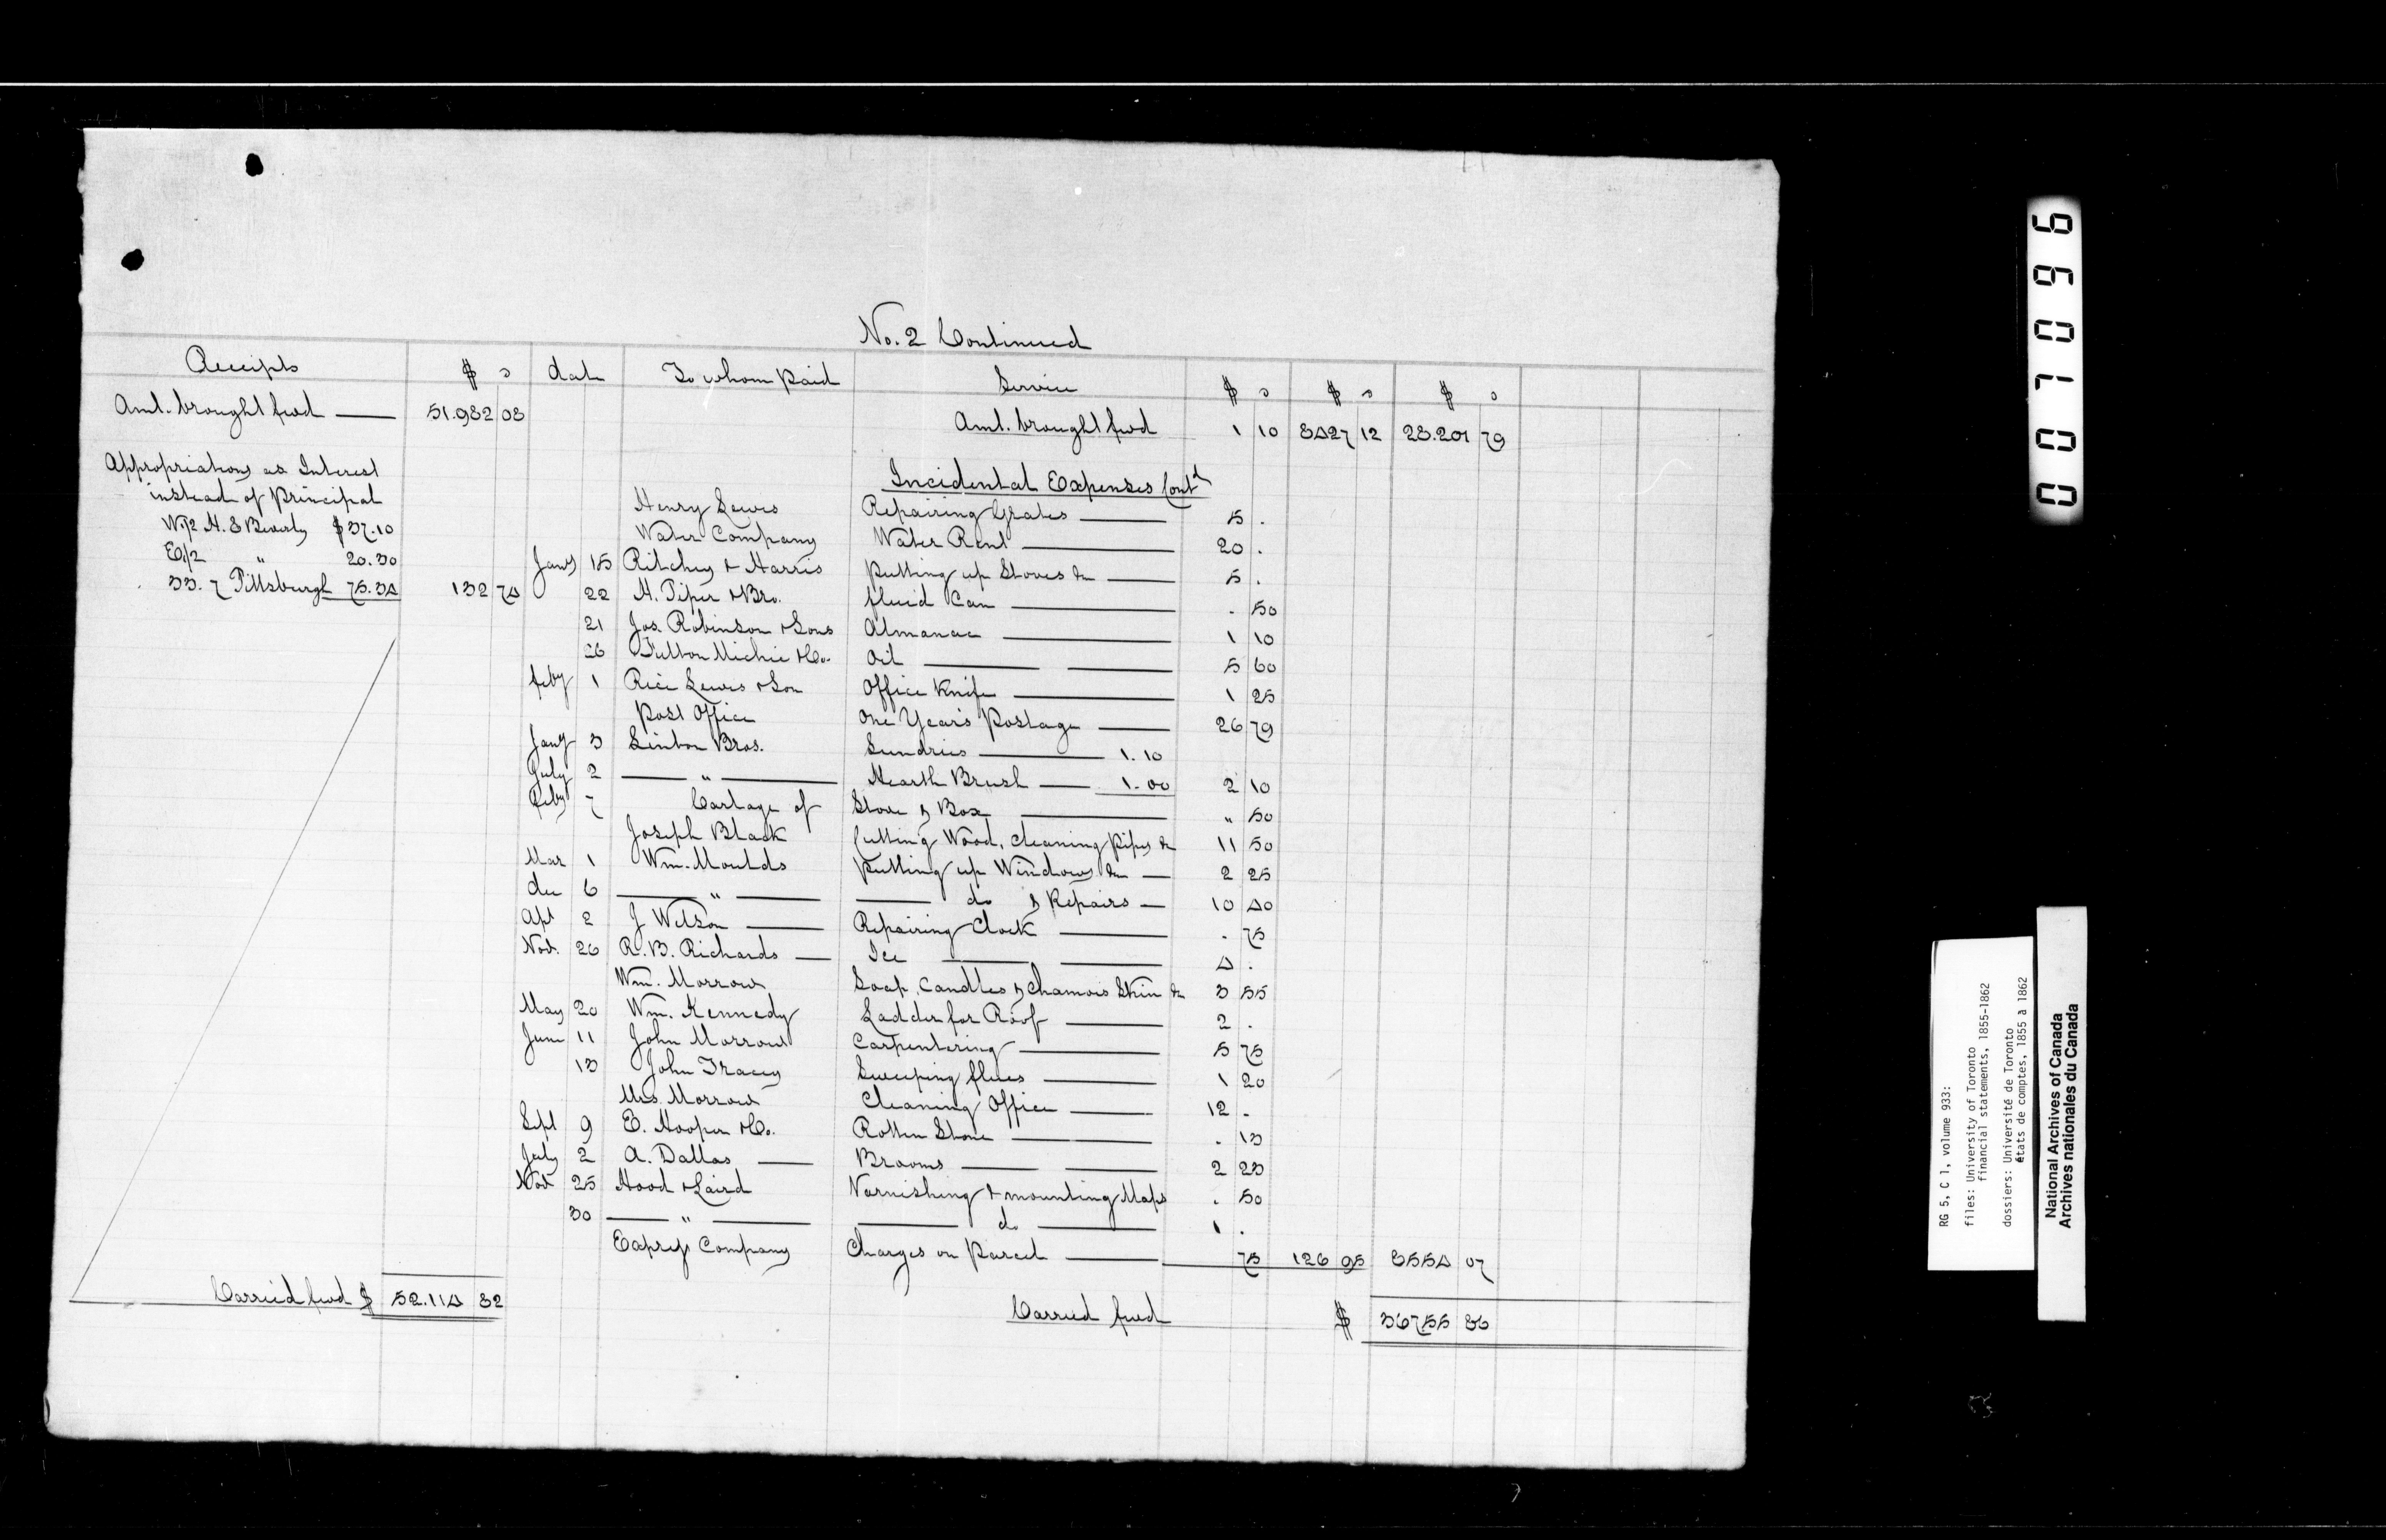 No. 2 Continued
Receipts $ c date To whom paid Service $ c $ c $ c
Amt. brought fwd 51.982 08 Amt. brought fwd 1 10 8427 12 28.201 79
Appropriations as Interest
instead of Principal
W 1/2 11. 8 Beverly $37.10
E 1/2 " 20.30
33. 7 Pittsburgh 75.34 132 74
Incidental Expenses Contd
Henry Lewis Repairing Grates 5 .
Water Company Water Rent 20 .
Jany 15 Ritchey & Harris putting up Stoves &c 5 .
22 H. Piper & Bro. fluid Can . 50
21 Jos. Robinson & Sons Almanac 1 10
26 Fulton Michie & Co. Oil 5 60
feby 1 Rice Lewis & Son Office Knife 1 25
Post Office One Year's Postage 26 79
Jany 3 Linton Bros. Sundries 1.10
July 2 " Hearth Brush 1.00 2 10
feby 7 Cartage of Stove & Box " 50
Joseph Black Cutting Wood, cleaning pipes &c 11 50
Mar 1 Wm. Moulds putting up Windows &c 2 25
dec 6 " do & Repairs 10 40
Apl 2 J Wilson Repairing Clock . 75
Nov. 26 R. B. Richards Ice 4 .
Wm. Morrow Soap, Candles & Chamois Skin &c 3 55
May 20 Wm. Kennedy Ladder for Roof 2 .
June 11 John Morrow Carpentering 5 75
13 John Tracey Sweeping flues 1 20
Mrs. Morrow Cleaning Office 12 .
Sept 9 E. Hooper & Co. Rotten Stone . 13
July 2 A. Dallas Brooms 2 23
Nov 25 Hood & Laird Varnishing & mounting Maps . 50
30 " do 1 .
Express Company Charges on Parcel 75 126 95 8554 07
Carried fwd $ 52.114 82
Carried fwd $ 36755 86
007096
RG 5, C 1, volume 933:
files: University of Toronto
financial statements, 1855-1862
dossiers: Université de Toronto
états de comptes, 1855 à 1862
National Archives of Canada
Archives nationales du Canada